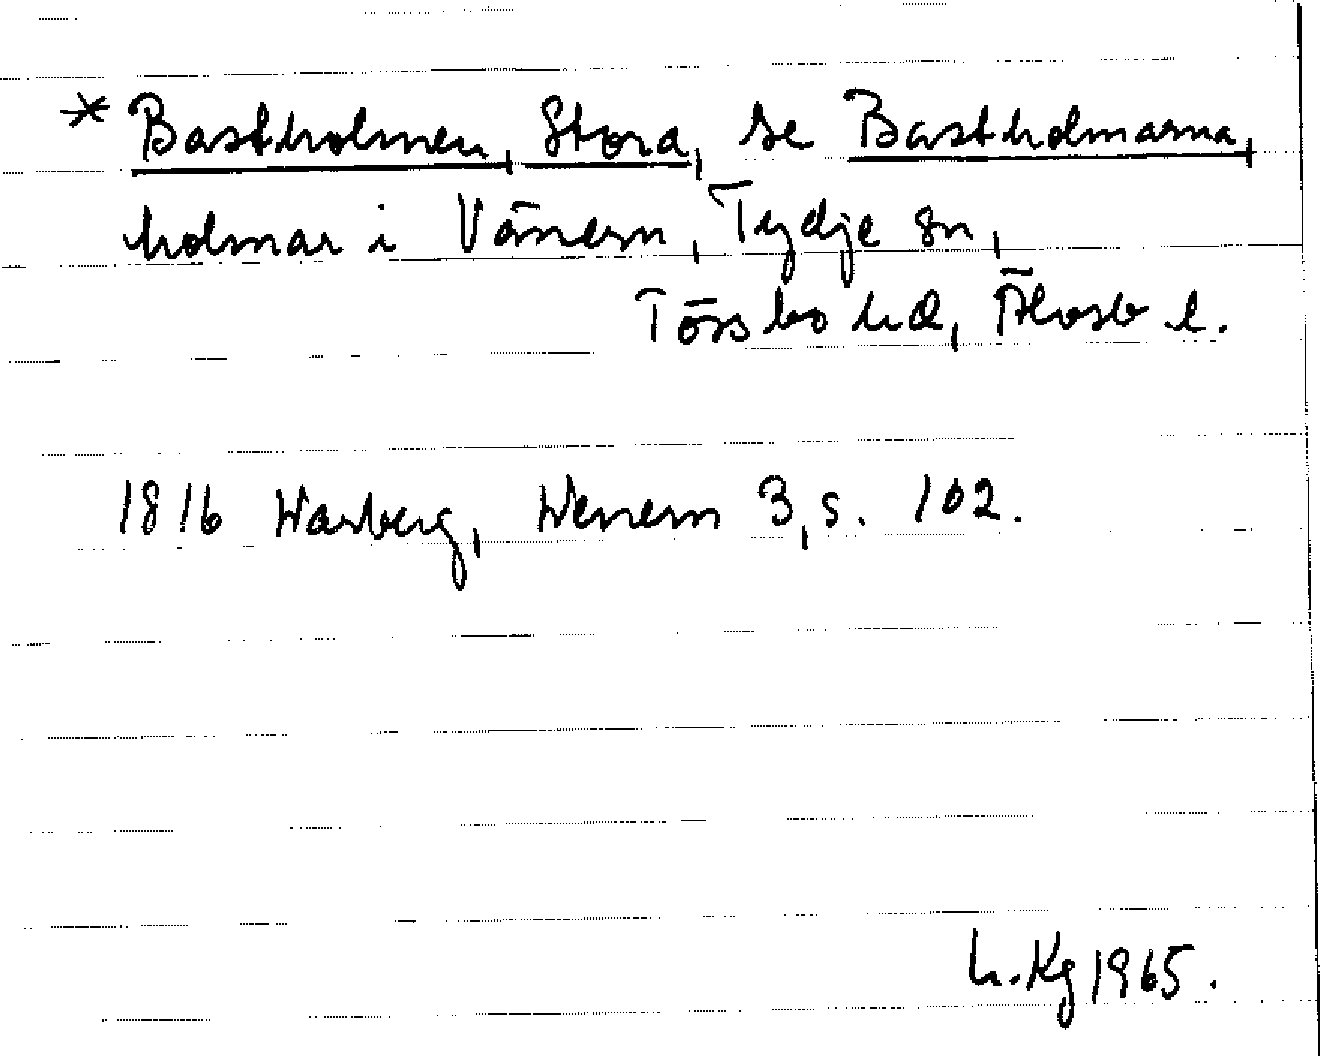 * Bastholmen, Stora, se Bastholmarna,
holmar i Vänern, Tydje sn,
Tössbo hd, Älvsb l.
1816 Warberg, Wenern 3, s. 102.
L. Kg 1965.